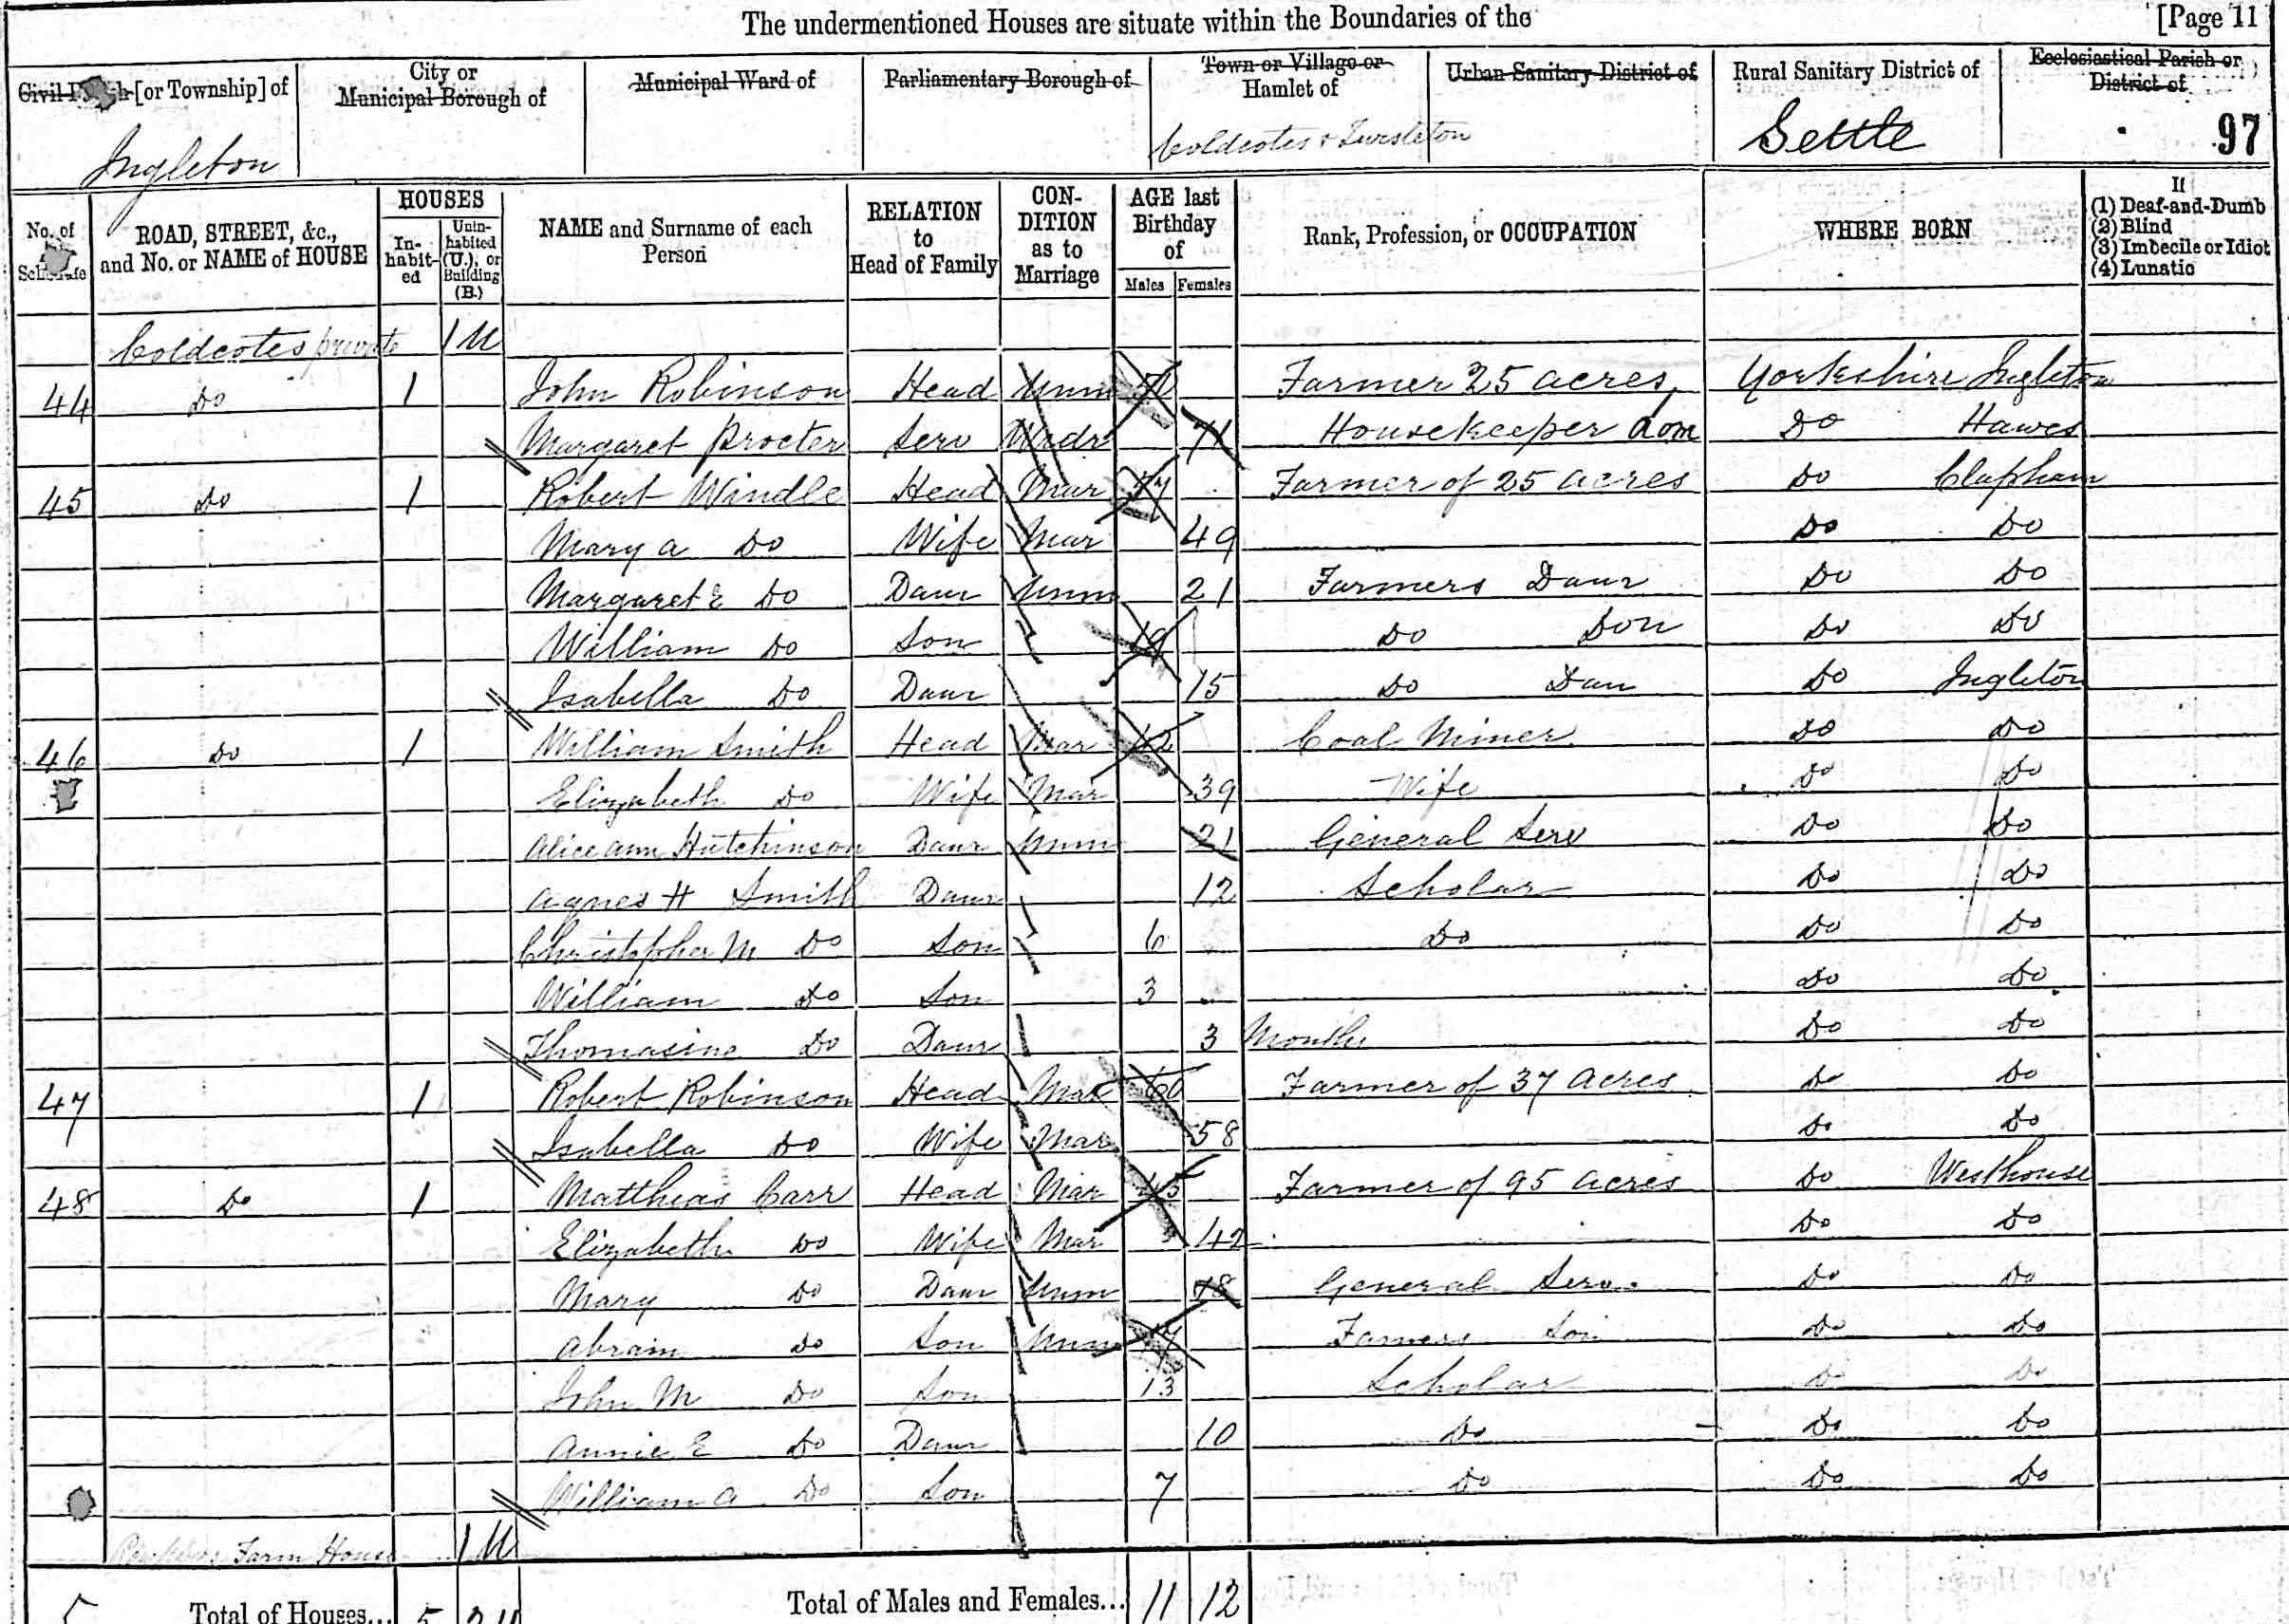 The undermentioned Houses are situate within the Boundaries of the [Page 11
Civil Parish [or Township] of City or Municipal Borough of Municipal Ward of Parliamentary Borough of Town or Village or Hamlet of Urban Sanitary District of Rural Sanitary District of Ecclesiastical Parish or District of
Ingleton Coldcotes & Settle 97
No. of Schedule ROAD, STREET, &c., and No. or NAME of HOUSE HOUSES Inhabited Uninhabited (U.), or Building (B.) NAME and Surname of each Person RELATION to Head of Family CONDITION as to Marriage AGE last Birthday of Males Females Rank, Profession, or OCCUPATION WHERE BORN If (1) Deaf-and-Dumb (2) Blind (3) Imbecile or Idiot (4) Lunatic
Coldcotes private 1 U
44 Do 1 John Robinson Head Unm Farmer 25 acres Yorkshire Ingleton
Margaret Procter Serv Widr 71 Housekeeper Dom Do Hawes
45 Do 1 Robert Windle Head Mar Farmer of 25 acres Do Clapham
Mary A Do Wife Mar 49 Do Do
Margaret E Do Daur Unm 21 Farmers Daur Do Do
William Do Son 19 Do Son Do Do
Isabella Do Daur 15 Do Dau Do Ingleton
46 Do 1 William Smith Head Mar 42 Coal Miner Do Do
Elizabeth Do Wife Mar 39 Wife Do Do
Alice Ann Hutchinson Daur Unm 21 General Serv Do Do
Agnes H Smith Daur 12 Scholar Do Do
Christopher M Do Son 6 Do Do Do
William Do Son 3 Do Do
Thomasine Do Daur 3 Months Do Do
47 1 Robert Robinson Head Mar Farmer of 37 Acres Do Do
Isabella Do Wife Mar 58 Do Do
48 Do 1 Matthias Carr Head Mar 45 Farmer of 95 acres Do Westhouse
Elizabeth Do Wife Mar 42 Do Do
Mary Do Daur Unm 18 General Serv. Do Do
Abram Do Son Unm 17 Farmers Son Do Do
John M Do Son 13 Scholar Do Do
Annie E Do Daur 10 Do Do Do
William A Do Son 7 Do Do Do
Farm House 1 U
5 Total of Houses... 5 2 U Total of Males and Females... 11 12